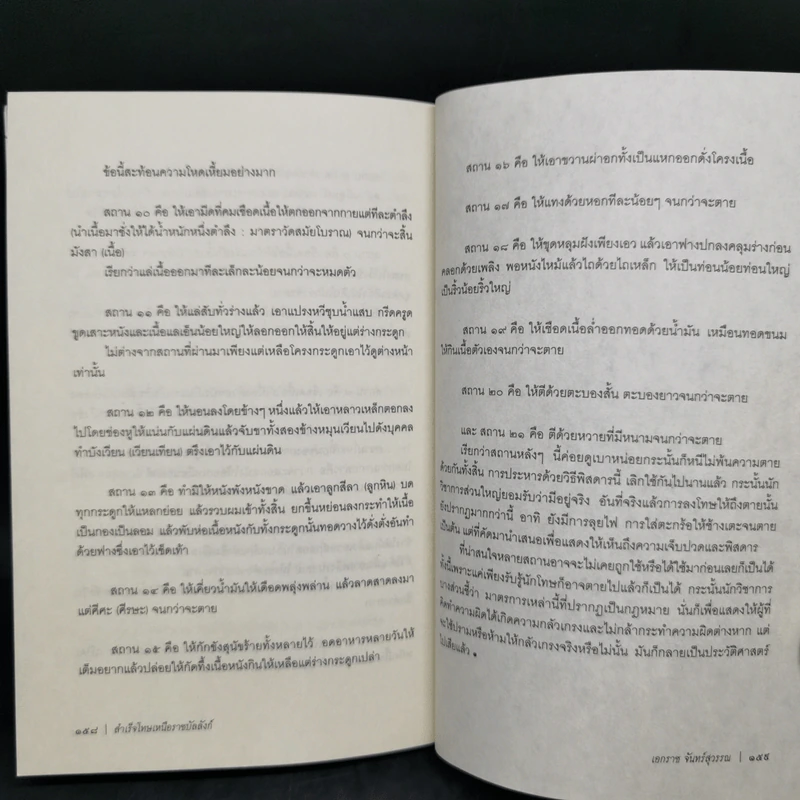 ข้อนี้สะท้อนความโหดเหี้ยมอย่างมาก
สถาน ๑๐ คือ ให้เอามีดที่คมเชือดเนื้อให้ตกออกจากกายแต่ทีละตำลึง
(นำเนื้อมาชั่งให้ได้น้ำหนักหนึ่งตำลึง : มาตราวัดสมัยโบราณ) จนกว่าจะสิ้น
มังสา (เนื้อ)
เรียกว่าแล่เนื้อออกมาทีละเล็กละน้อยจนกว่าจะหมดตัว
สถาน ๑๑ คือ ให้แล่สับทั่วร่างแล้ว เอาแปรงหวีชุบน้ำแสบ กรีดครูด
ขูดเสาะหนังและเนื้อแลเอ็นน้อยใหญ่ให้ลอกออกให้สิ้นให้อยู่แต่ร่างกระดูก
ไม่ต่างจากสถานที่ผ่านมาเพียงแต่เหลือโครงกระดูกเอาไว้ดูต่างหน้า
เท่านั้น
สถาน ๑๒ คือ ให้นอนลงโดยข้างๆ หนึ่งแล้วให้เอาหลาวเหล็กตอกลง
ไปโดยช่องหูให้แน่นกับแผ่นดินแล้วจับขาทั้งสองข้างหมุนเวียนไปดังบุคคล
ทำบังเวียน (เวียนเทียน) ตรึงเอาไว้กับแผ่นดิน
สถาน ๑๓ คือ ทำมิให้หนังพังหนังขาด แล้วเอาลูกสีลา (ลูกหิน) บด
ทุกกระดูกให้แหลกย่อย แล้วรวบผมเข้าทั้งสิ้น ยกขึ้นหย่อนลงกระทำให้เนื้อ
เป็นกองเป็นลอม แล้วพับห่อเนื้อหนังกับทั้งกระดูกนั้นทอดวางไว้ดั่งตั่งอันทำ
ด้วยฟางซึ่งเอาไว้เช็ดเท้า
สถาน ๑๔ คือ ให้เคี่ยวน้ำมันให้เดือดพลุ่งพล่าน แล้วลาดสาดลงมา
แต่ศีศะ (ศีรษะ) จนกว่าจะตาย
สถาน ๑๕ คือ ให้กักขังสุนัขร้ายทั้งหลายไว้ อดอาหารหลายวันให้
เต็มอยากแล้วปล่อยให้กัดทึ้งเนื้อหนังกินให้เหลือแต่ร่างกระดูกเปล่า
๑๕๘ | สำเร็จโทษเหนือราชบัลลังก์
สถาน ๑๖ คือ ให้เอาขวานผ่าอกทั้งเป็นแหกออกดั่งโครงเนื้อ
สถาน ๑๗ คือ ให้แทงด้วยหอกทีละน้อยๆ จนกว่าจะตาย
สถาน ๑๘ คือ ให้ขุดหลุมฝังเพียงเอว แล้วเอาฟางปกลงคลุมร่างก่อน
คลอกด้วยเพลิง พอหนังไหม้แล้วไถด้วยไถเหล็ก ให้เป็นท่อนน้อยท่อนใหญ่
เป็นริ้วน้อยริ้วใหญ่
สถาน ๑๙ คือ ให้เชือดเนื้อล่ำออกทอดด้วยน้ำมัน เหมือนทอดขนม
ให้กินเนื้อตัวเองจนกว่าจะตาย
สถาน ๒๐ คือ ให้ตีด้วยตะบองสั้น ตะบองยาวจนกว่าจะตาย
และ สถาน ๒๑ คือ ตีด้วยหวายที่มีหนามจนกว่าจะตาย
เรียกว่าสถานหลังๆ นี้ค่อยดูเบาหน่อยกระนั้นก็หนีไม่พ้นความตาย
ด้วยกันทั้งสิ้น การประหารด้วยวิธีพิสดารนี้ เลิกใช้กันไปนานแล้ว กระนั้นนัก
วิชาการส่วนใหญ่ยอมรับว่ามีอยู่จริง อันที่จริงแล้วการลงโทษให้ถึงตายนั้น
ยังปรากฏมากกว่านี้ อาทิ ยังมีการลุยไฟ การใส่ตะกร้อให้ช้างเตะจนตาย
เป็นต้น แต่ที่คัดมานำเสนอเพื่อแสดงให้เห็นถึงความเจ็บปวดและพิสดาร
ที่น่าสนใจหลายสถานอาจจะไม่เคยถูกใช้หรือได้ใช้มาก่อนเลยก็เป็นได้
ทั้งนี้เพราะแค่เพียงรับรู้นักโทษก็อาจตายไปแล้วก็เป็นได้ กระนั้นนักวิชาการ
บางส่วนชี้ว่า มาตรการเหล่านี้ที่ปรากฏเป็นกฎหมาย นั่นก็เพื่อแสดงให้ผู้ที่
คิดทำความผิดได้เกิดความกลัวเกรงและไม่กล้ากระทำความผิดต่างหาก แต่
จะใช้ปรามหรือห้ามให้กลัวเกรงจริงหรือไม่นั้น มันก็กลายเป็นประวัติศาสตร์
ไปเสียแล้ว
เอกราช จันทร์สุวรรณ | ๑๕๙